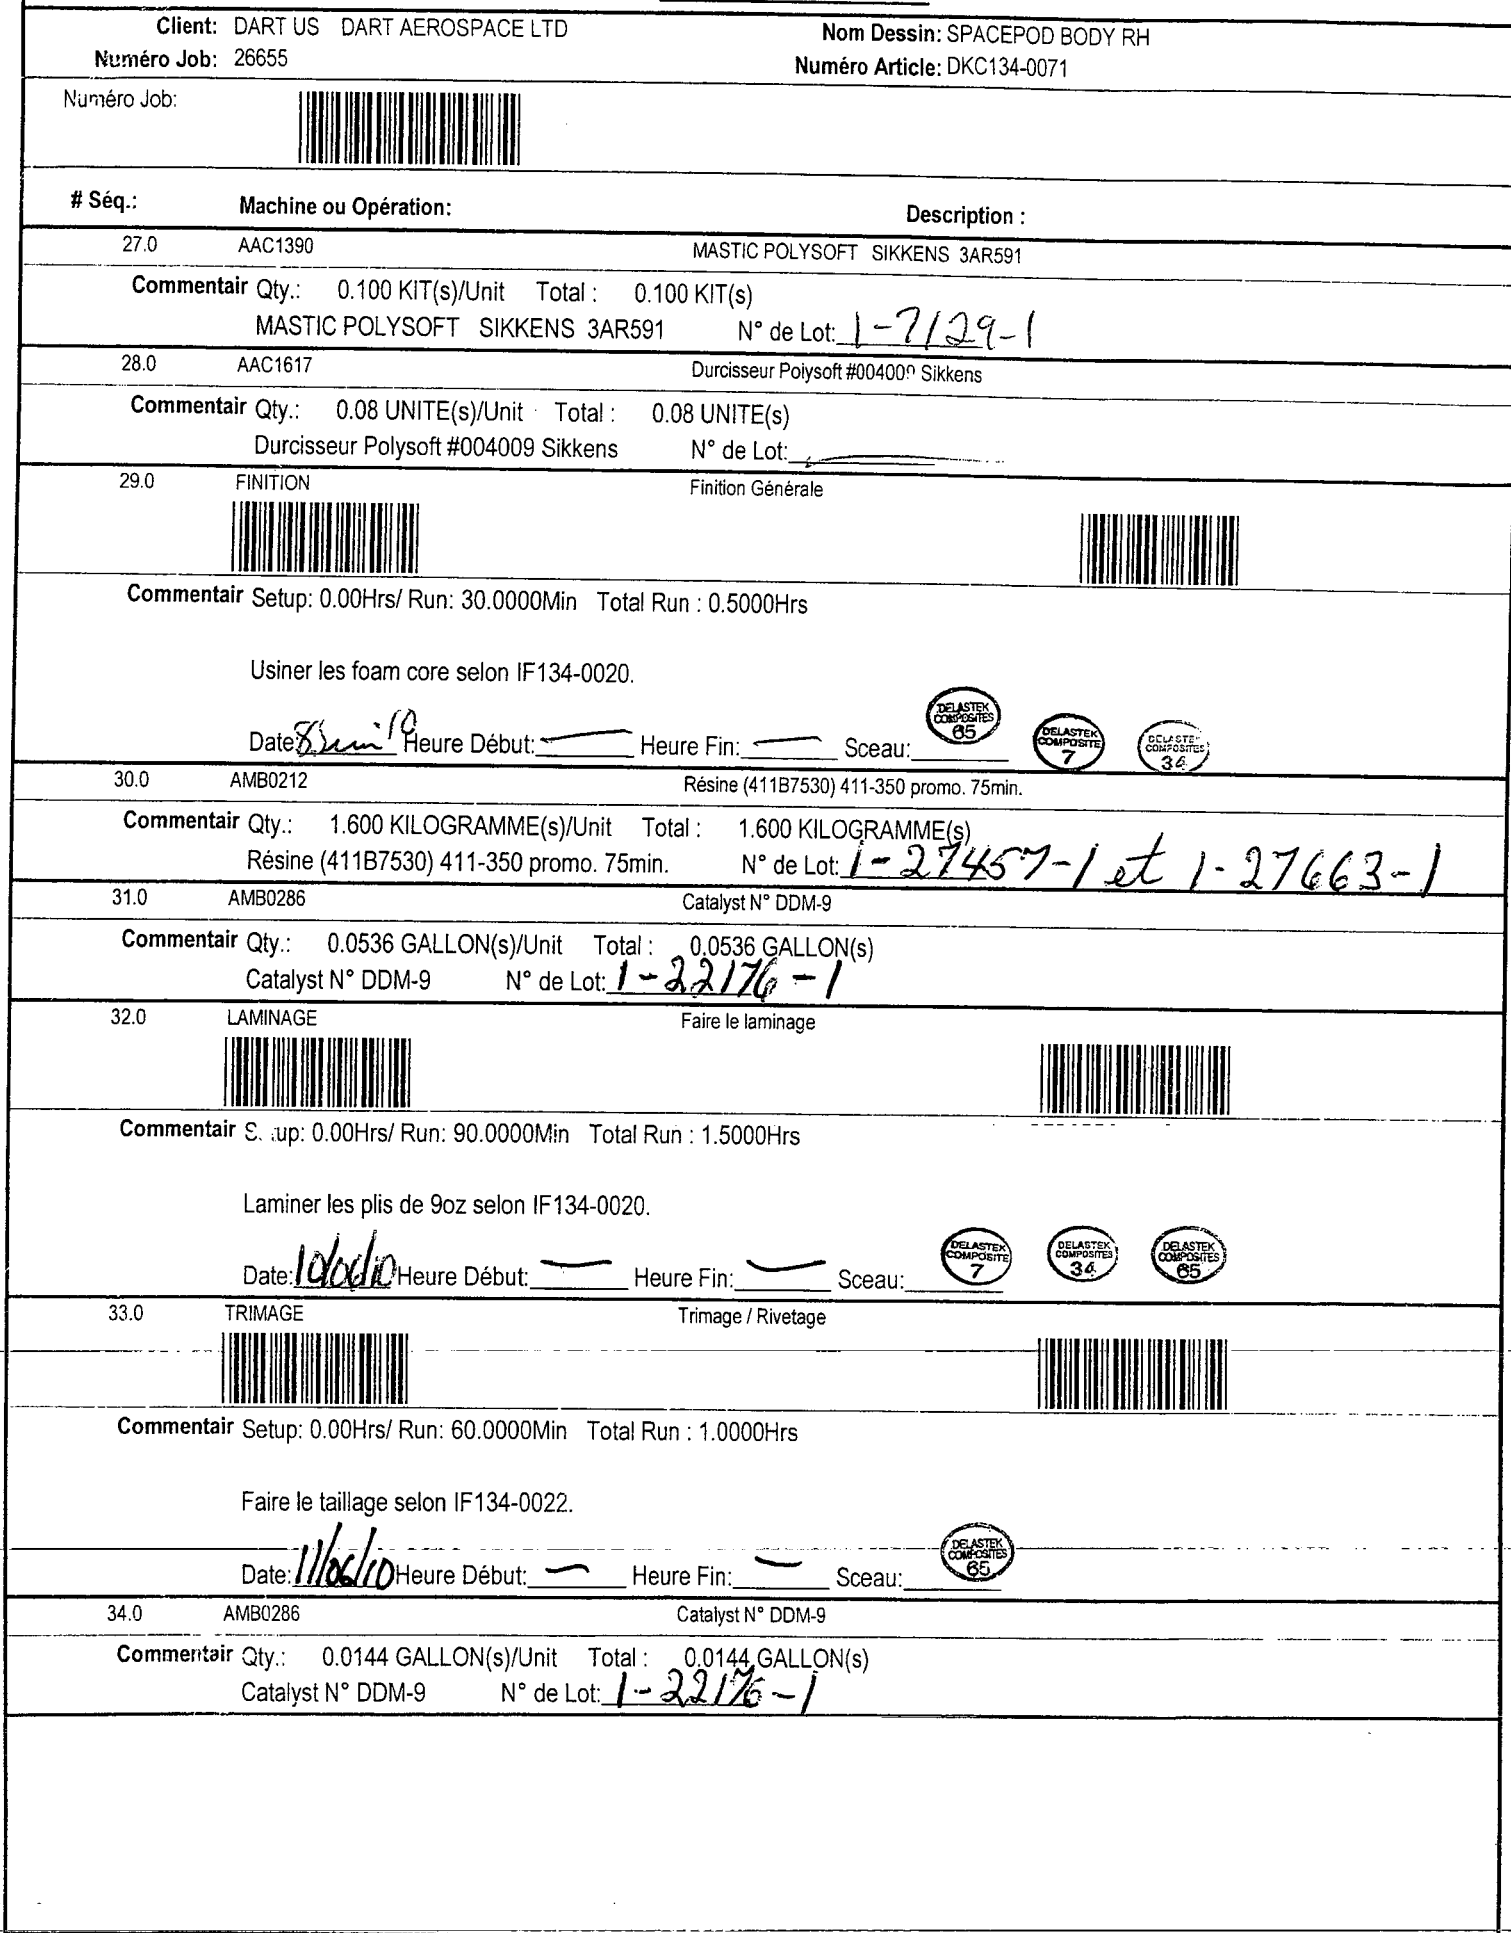 Client: DART US DART AEROSPACE LTD Nom Dessin: SPACEPOD BODY RH
Numéro Job: 26655 Numéro Article: DKC134-0071
Numéro Job:
# Séq.: Machine ou Opération: Description :
27.0 AAC1390 MASTIC POLYSOFT SIKKENS 3AR591
Commentair Qty.: 0.100 KIT(s)/Unit Total : 0.100 KIT(s)
MASTIC POLYSOFT SIKKENS 3AR591 N° de Lot: 1-7129-1
28.0 AAC1617 Durcisseur Polysoft #004009 Sikkens
Commentair Qty.: 0.08 UNITE(s)/Unit Total : 0.08 UNITE(s)
Durcisseur Polysoft #004009 Sikkens N° de Lot:
29.0 FINITION Finition Générale
Commentair Setup: 0.00Hrs/ Run: 30.0000Min Total Run : 0.5000Hrs
Usiner les foam core selon IF134-0020.
Date: 8 Juin 10 Heure Début: — Heure Fin: — Sceau: DELASTEK COMPOSITES 65 DELASTEK COMPOSITE 7 DELASTEK COMPOSITES 34
30.0 AMB0212 Résine (411B7530) 411-350 promo. 75min.
Commentair Qty.: 1.600 KILOGRAMME(s)/Unit Total : 1.600 KILOGRAMME(s)
Résine (411B7530) 411-350 promo. 75min. N° de Lot: 1-27457-1 et 1-27663-1
31.0 AMB0286 Catalyst N° DDM-9
Commentair Qty.: 0.0536 GALLON(s)/Unit Total : 0.0536 GALLON(s)
Catalyst N° DDM-9 N° de Lot: 1-22176-1
32.0 LAMINAGE Faire le laminage
Commentair S up: 0.00Hrs/ Run: 90.0000Min Total Run : 1.5000Hrs
Laminer les plis de 9oz selon IF134-0020.
Date: 10/06/10 Heure Début: — Heure Fin: — Sceau: DELASTEK COMPOSITE 7 DELASTEK COMPOSITES 34 DELASTEK COMPOSITES 65
33.0 TRIMAGE Trimage / Rivetage
Commentair Setup: 0.00Hrs/ Run: 60.0000Min Total Run : 1.0000Hrs
Faire le taillage selon IF134-0022.
Date: 11/06/10 Heure Début: — Heure Fin: — Sceau: DELASTEK COMPOSITES 65
34.0 AMB0286 Catalyst N° DDM-9
Commentair Qty.: 0.0144 GALLON(s)/Unit Total : 0.0144 GALLON(s)
Catalyst N° DDM-9 N° de Lot: 1-22176-1